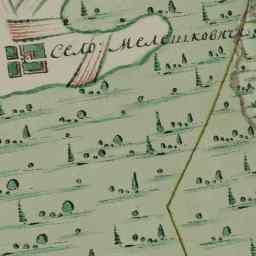 Село: Мелешковичи